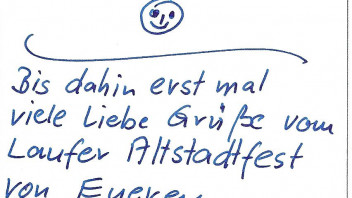 Bis dahin erst mal
viele Liebe Grüße vom
Laufer Altstadtfest
von Eueren